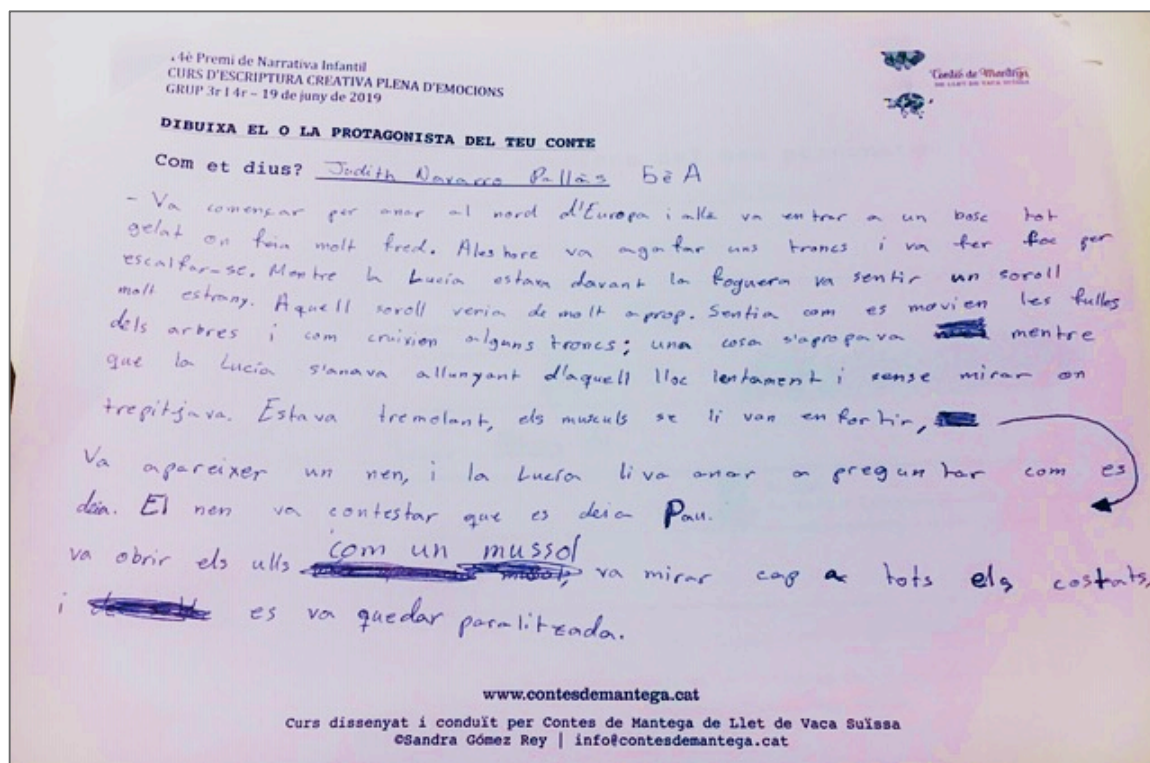 .4è Premi de Narrativa Infantil
CURS D'ESCRIPTURA CREATIVA PLENA D'EMOCIONS
GRUP 3r I 4r – 19 de juny de 2019
Contes de Mantega
DE LLET DE VACA SUÏSSA
DIBUIXA EL O LA PROTAGONISTA DEL TEU CONTE
Com et dius? Judith Navarro Pallàs 5è A
- Va començar per anar al nord d'Europa i alla va entrar a un bosc tot
gelat on feia molt fred. Aleshore va agafar uns troncs i va fer foc per
escalfar-se. Mentre la Lucía estava davant la foguera va sentir un soroll
molt estrany. Aquell soroll venia de molt aprop. Sentia com es movien les fulles
dels arbres i com cruixien alguns troncs; una cosa s'apropava mentre
que la Lucía s'anava allunyant d'aquell lloc lentament i sense mirar on
trepitjava. Estava tremolant, els musculs se li van enfortir,
Va apareixer un nen, i la Lucía li va anar a preguntar com es
deia. El nen va contestar que es deia Pau.
va obrir els ulls com un mussol, va mirar cap a tots els costats,
i es va quedar paralitzada.
www.contesdemantega.cat
Curs dissenyat i conduït per Contes de Mantega de Llet de Vaca Suïssa
©Sandra Gómez Rey | info@contesdemantega.cat